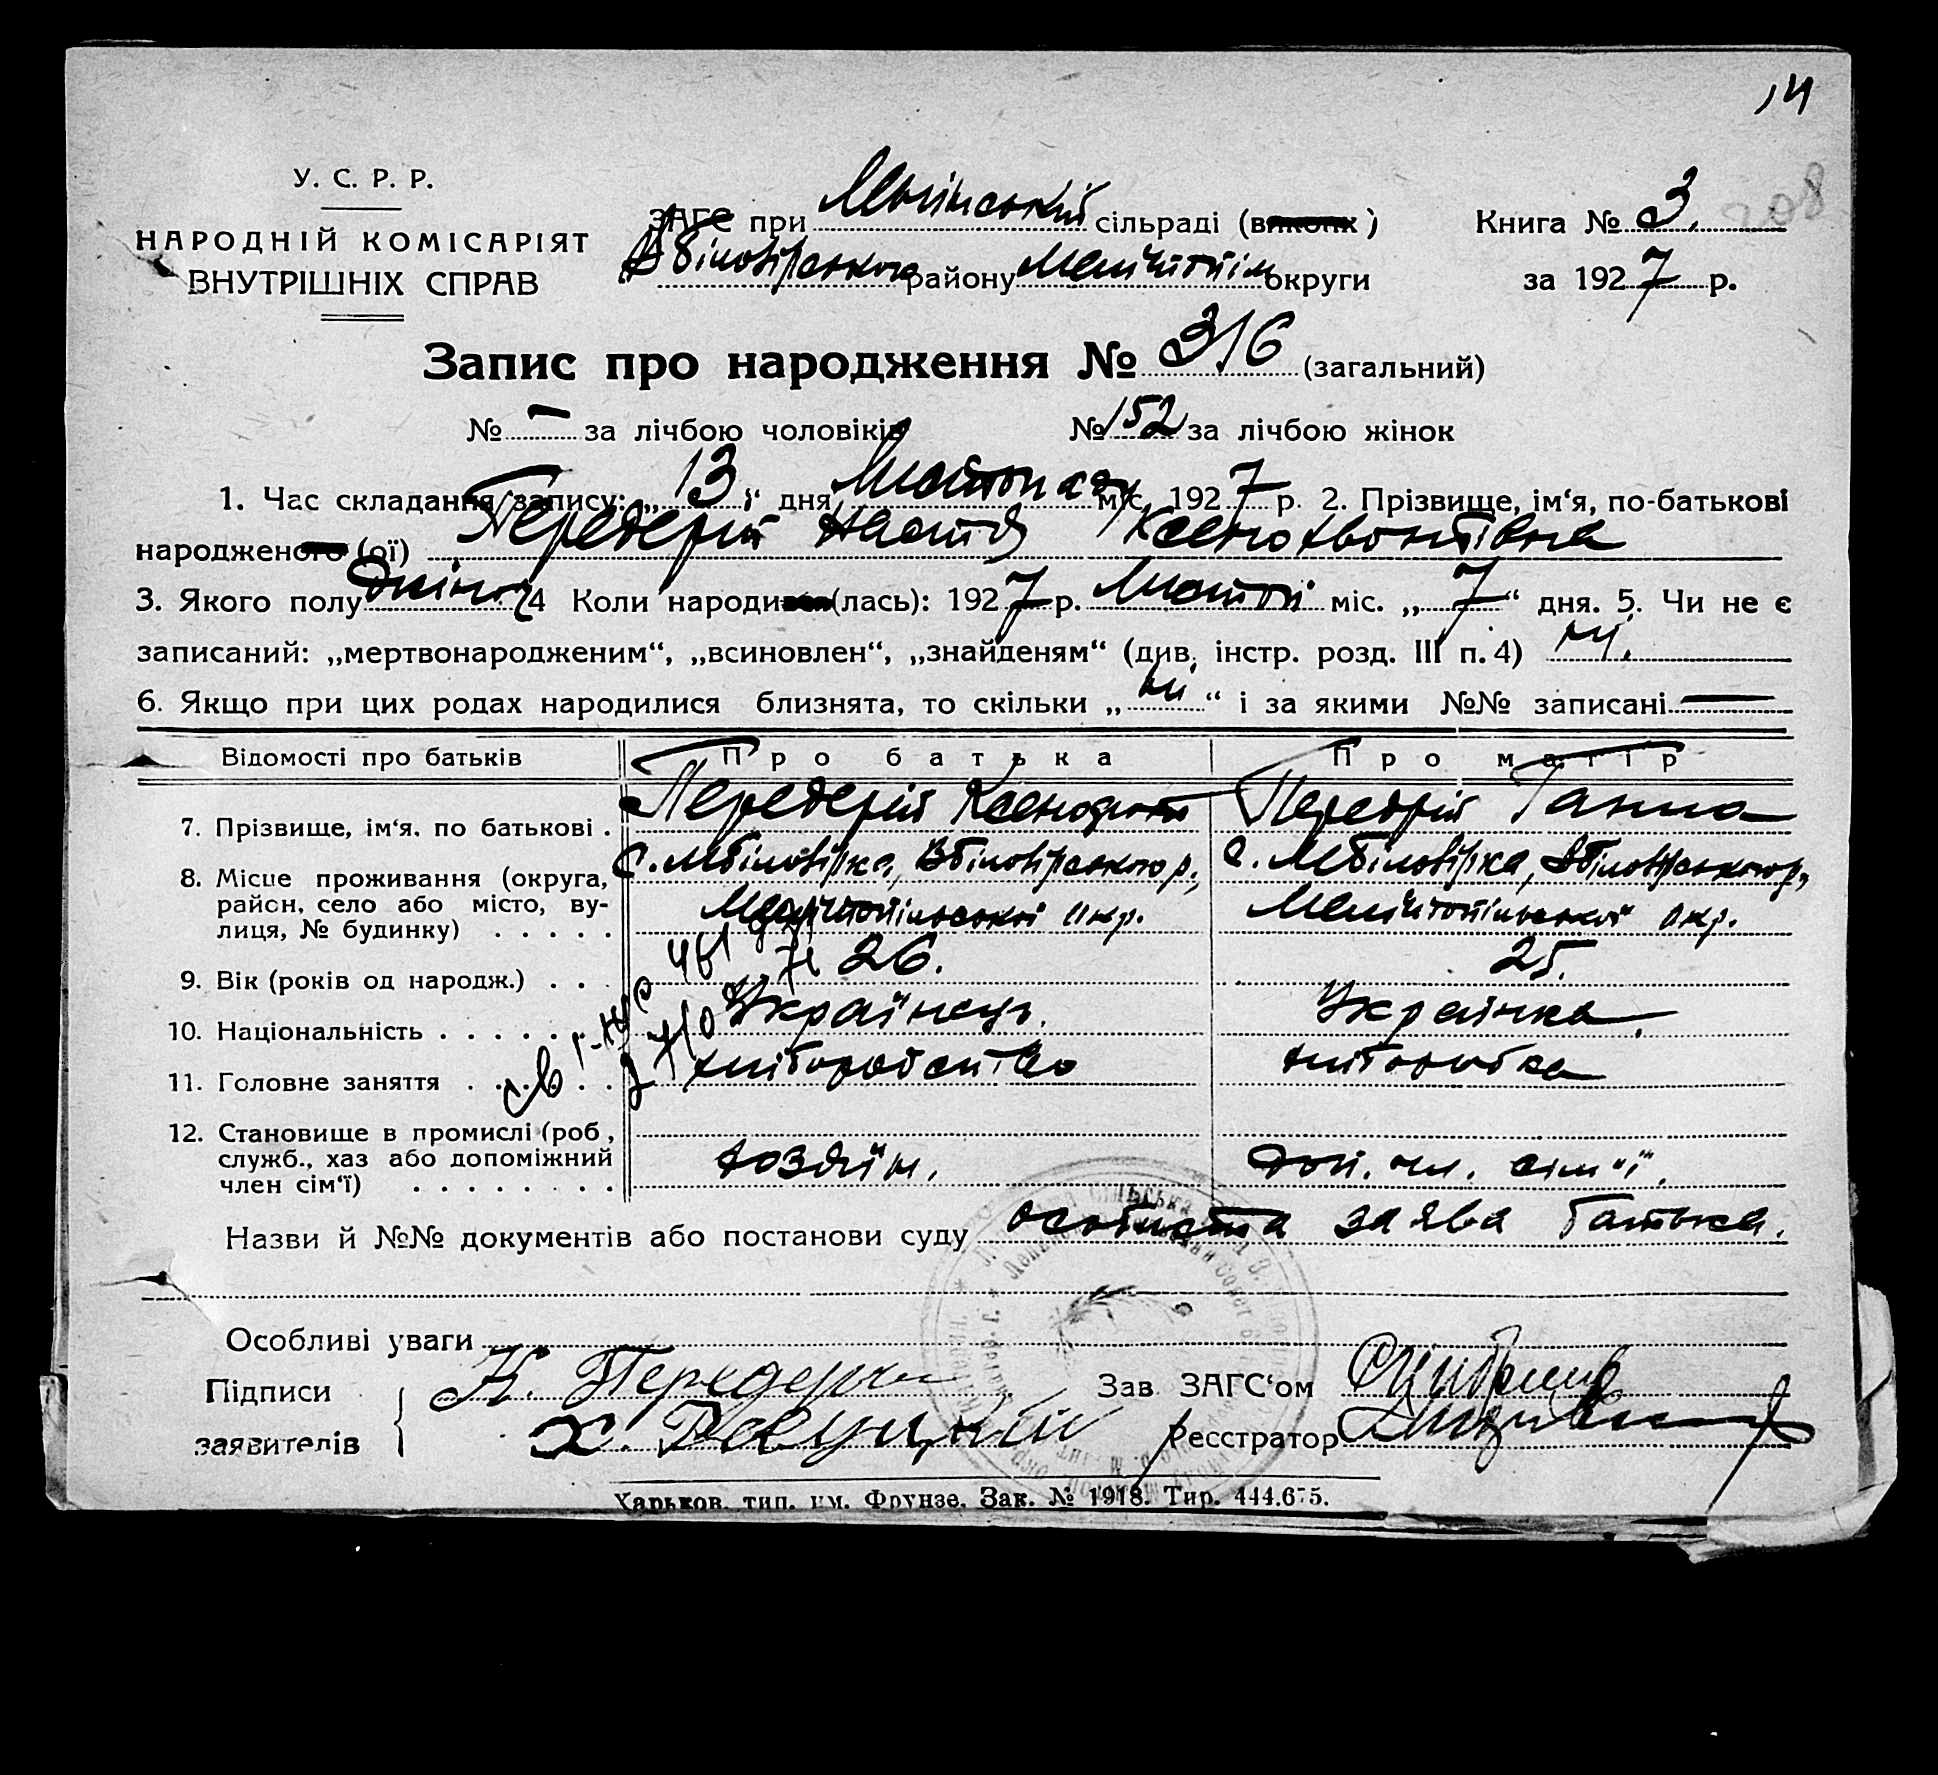 14
У. С. Р. Р.
НАРОДНІЙ КОМІСАРІЯТ
ВНУТРІШНІХ СПРАВ
ЗАГС при сільраді (виконк)
району Мелітопіль округи
Книга № 3.
за 1927 р.
Запис про народження № 316 (загальний)
№ — за лічбою чоловіків № 152 за лічбою жінок
1. Час складання запису: „13“ дня Листопада міс. 1927 р. 2. Прізвище, ім‘я, по-батькові
народженого (ої) Передерій Настя Ксенофонтівна
3. Якого полу жіноч 4 Коли народився (лась): 1927 р. Листоп міс. „7“ дня. 5. Чи не є
записаний: „мертвонародженим“, „всиновлен“, „знайденям“ (див. інстр. розд. III п. 4) ні.
6. Якщо при цих родах народилися близнята, то скільки „ні“ і за якими №№ записані —
Відомості про батьків Про батька Про матір
7. Прізвище, ім‘я, по батькові . Передерій Ксенофонт Передрій Ганна
8. Місце проживання (округа, с. Мбіловірка, Вбіловірського р., с. Мбіловірка, Вбіловірського р,
район, село або місто, ву-
лиця, № будинку) . . . . . Мелітопільської окр. Мелітопільської окр.
9. Вік (років од народж.) . . . 26. 25.
10. Національність . . . . . Українець. Українка.
11. Головне заняття . . . . хліборобство хліборобка
12. Становище в промислі (роб,
служб., хаз або допоміжний хозяїн. доп. чл. сім"ї.
член сім‘ї) . . . . . . . .
Назви й №№ документів або постанови суду особиста заява батька.
Особливі уваги
Підписи К. Передерий Зав ЗАГС‘ом
заявителів Х. Реєстратор
Харьков. тип. им. Фрунзе. Зак. № 1918. Тир. 444.675.